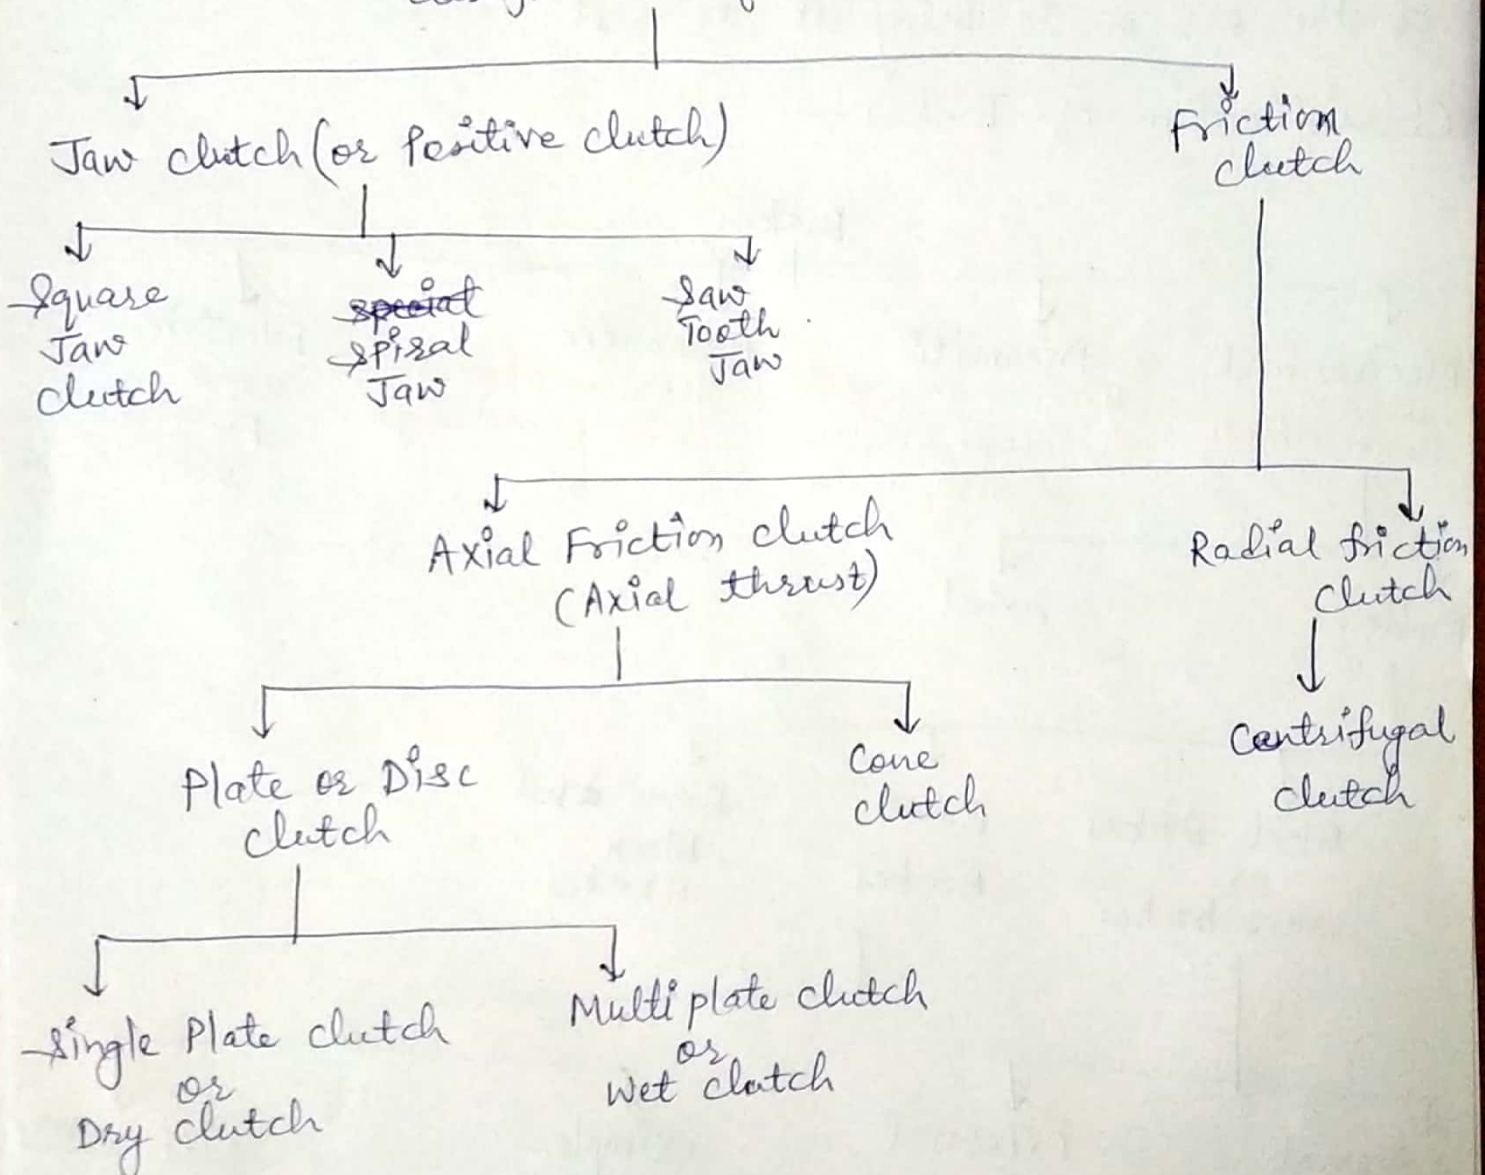 Jaw clutch (or Positive clutch)
Friction
clutch
Square
Jaw
clutch
special
spiral
Jaw
Saw
Tooth
Jaw
Axial Friction clutch
(Axial thrust)
Radial friction
clutch
Plate or Disc
clutch
Cone
clutch
Centrifugal
clutch
Single Plate clutch
or
Dry clutch
Multi plate clutch
or
Wet clutch